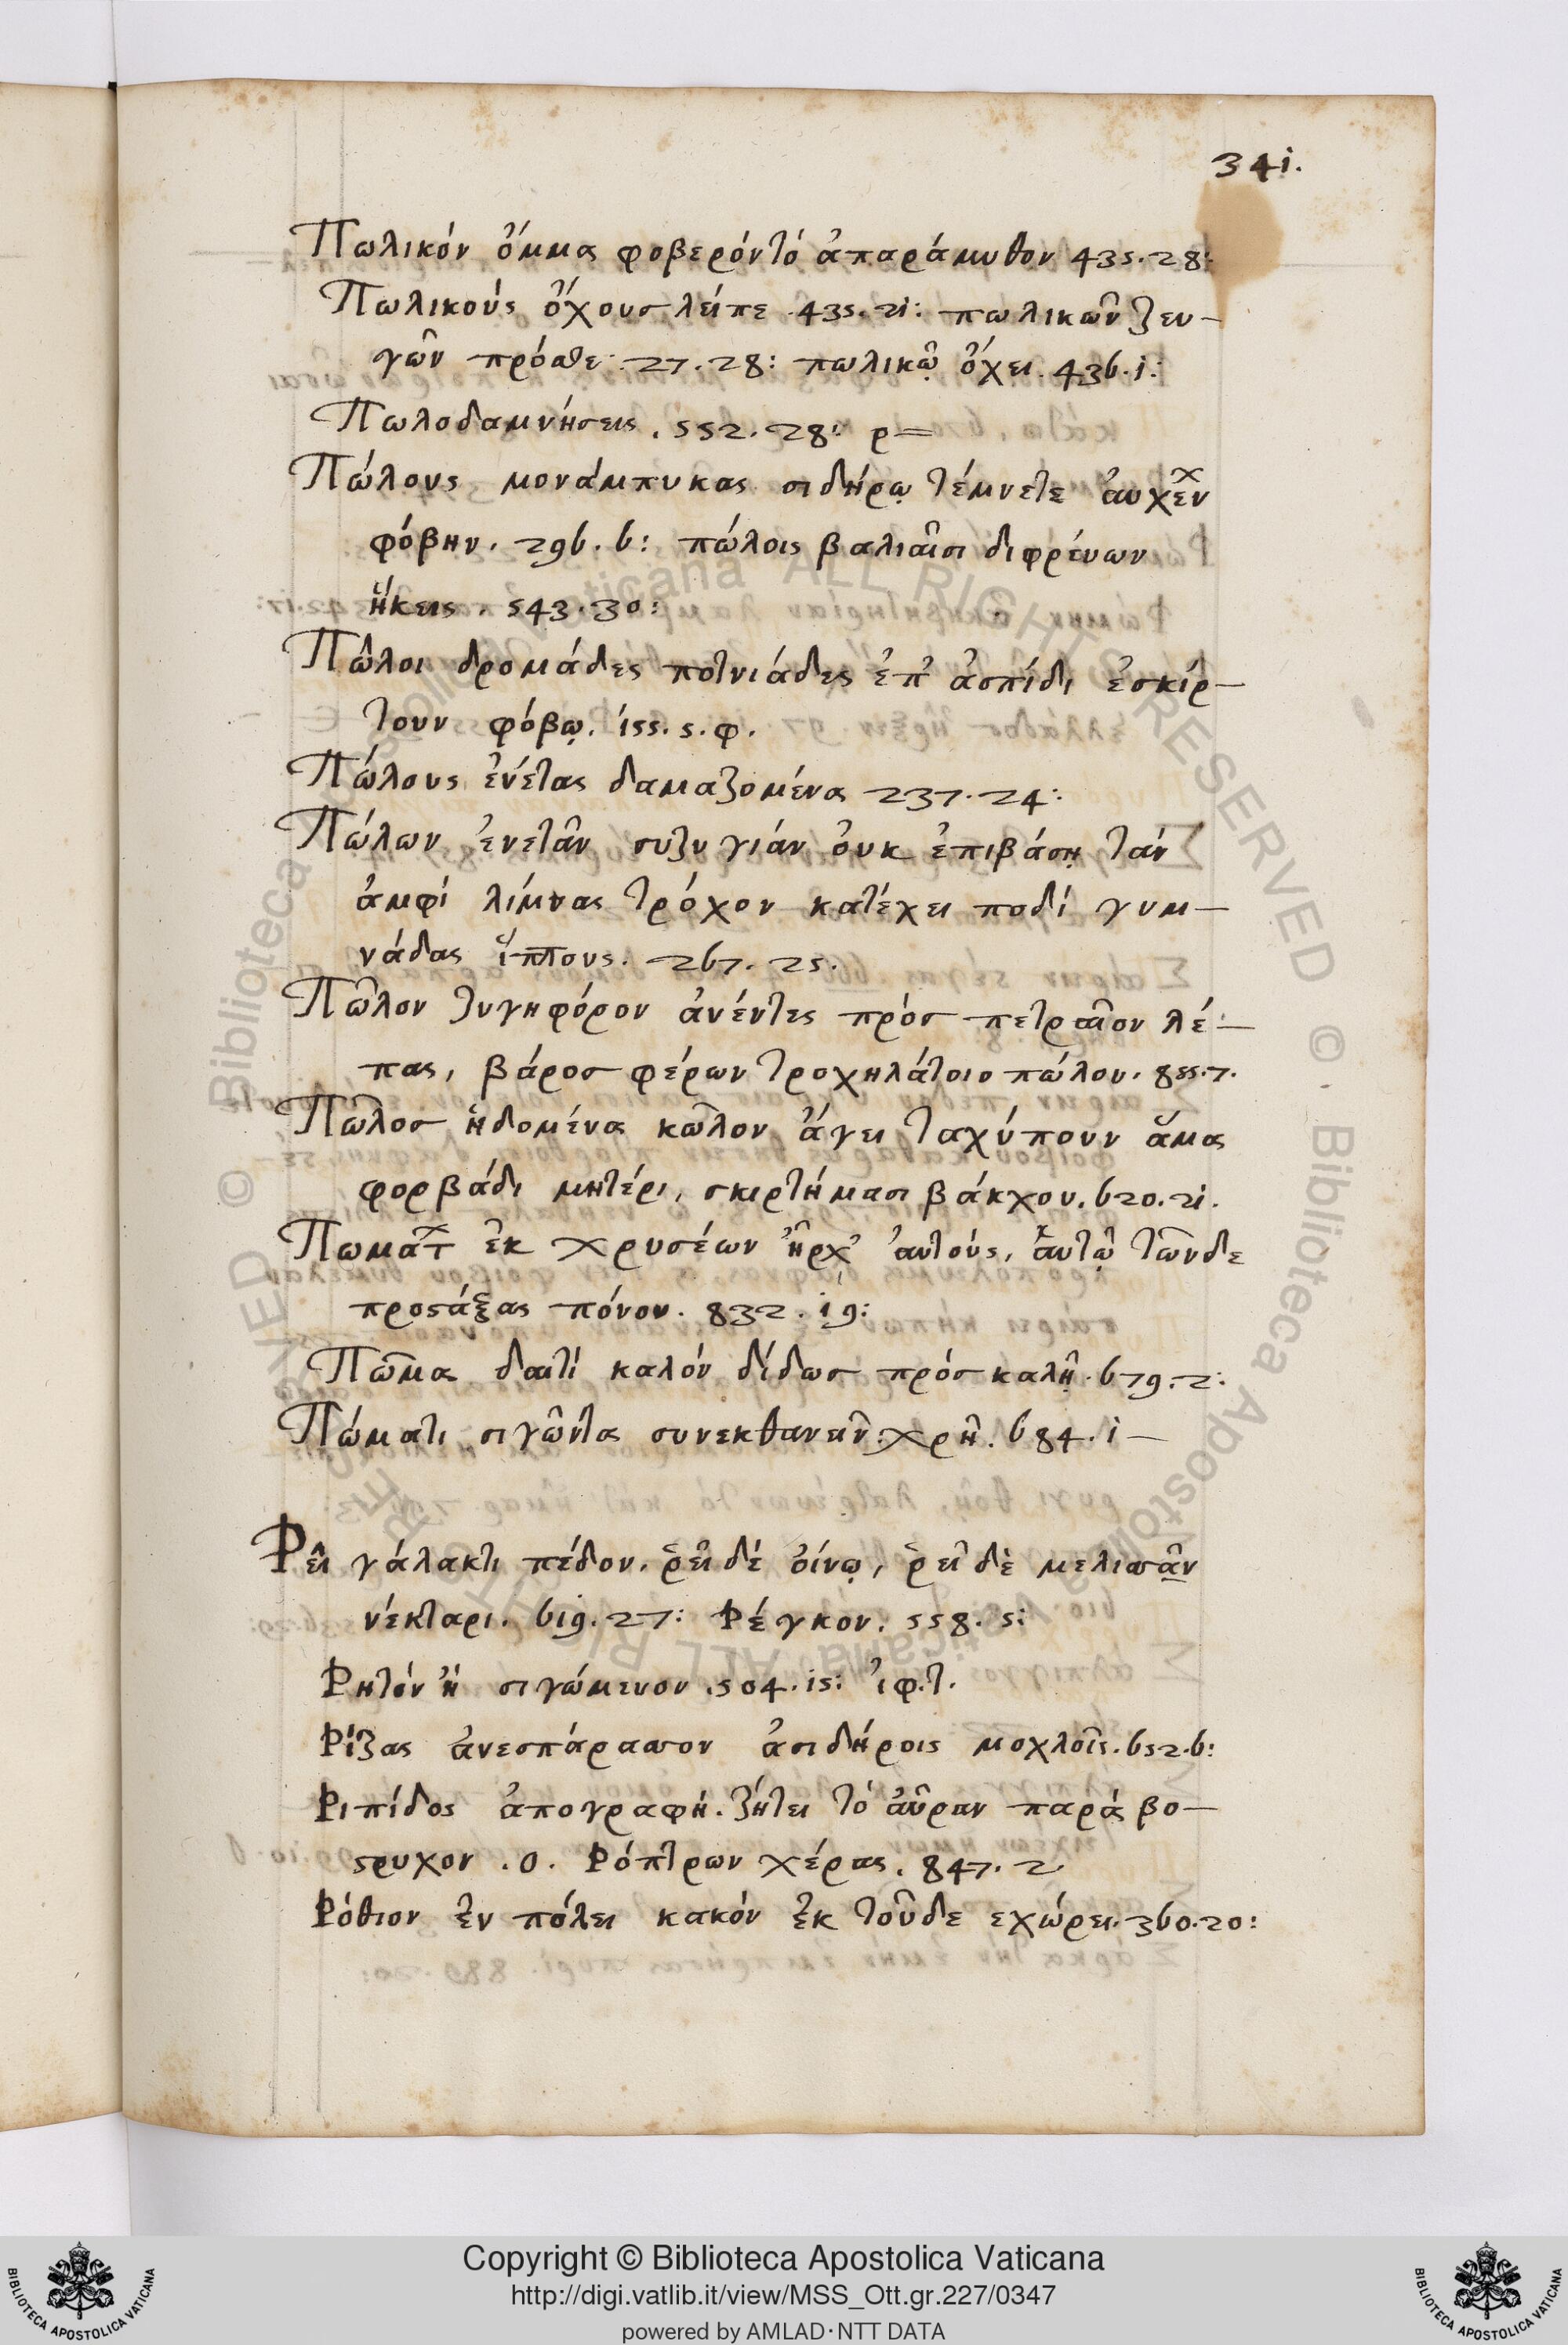 341.
Πωλικόν ὄμμα φοβερόν τό ἀπαράμυθον 435.28:
Πωλικούς ὄχους λεῖπε .435.21: πωλικῶν ζευ–
γῶν πρόσθε 27.28: πωλικῷ ὄχει. 436.1:
Πωλοδαμνήσεις. 552.28: ρ=
Πώλους μονάμπυκας σιδήρῳ τέμνετε ἀυχέν
φόβην. 296.6: πώλοις βαλιαῖσι διφρέυων
ἥκεις. 543.30:
Πῶλοι δρομάδες ποτνιάδες ἐπ' ἀσπίδι ἐσκίρ–
τουν φόβῳ. 155.5.φ.
Πώλους ἐνέτας δαμαζομένα 237.24:
Πώλων ἐνετᾶν συζυγιάν ὀυκ ἐπιβάσῃ τάν
ἀμφί λίμνας τρόχον κατέχει ποδί γυμ–
νάδας ἵππους. 267.25.
Πῶλον ζυγηφόρον ἀνέντες πρός πετραῖον λέ–
πας, βάρος φέρων τροχηλάτοιο πώλου. 855.7.
Πῶλος ἡδομένα κῶλον ἄγει ταχύπουν ἅμα
φορβάδι μητέρι, σκιρτήμασι βάκχου. 620.21.
Πωμάτ ἐκ χρυσέων ἦρχ' ἀυτούς, ἀυτῷ τῶνδε
προστάξας πόνον. 832.19:
Πῶμα δαιτί καλόν δίδως πρός καλῇ. 679.2:
Πώματι σιγῶντα συνεκθανεῖν χρή. 684.1–
Ῥεῖ γάλακτι πέδον. ῥεῖ δέ ὀίνῳ, ῥεῖ δὲ μελισσᾶν
νέκταρι. 619.27: Ῥέγκον. 558.5:
Ῥητόν ἤ σιγώμενον .504.15: ἰφ.τ.
Ῥίζας ἀνεσπάρασσον ἀσιδήροις μοχλοῖς. 652.6:
Ῥιπίδος ἀπογραφή. ζήτει τό ἄυραν παρά βό–
στρυχον .ο. Ῥόπτρων χέρας. 847.2
Ῥόθιον ἐν πόλει κακόν ἐκ τοῦδε εχώρει. 360.20:
Copyright © Biblioteca Apostolica Vaticana
http://digi.vatlib.it/view/MSS_Ott.gr.227/0347
powered by AMLAD·NTT DATA